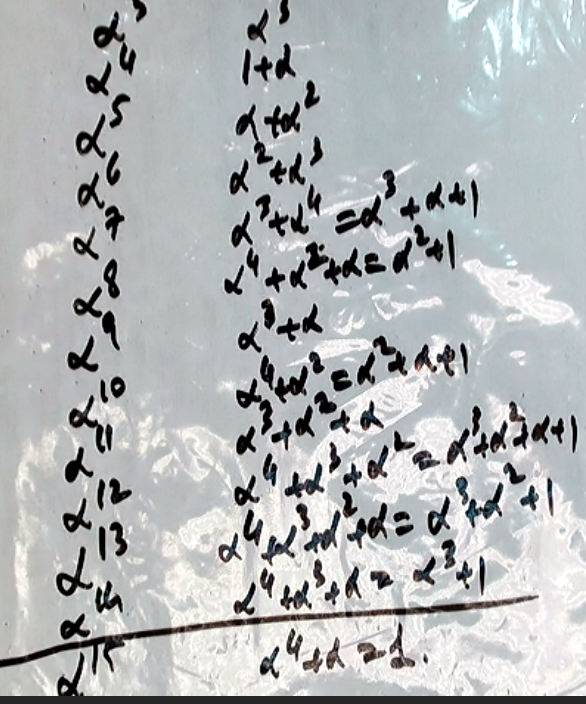 α³ α³
α⁴ 1+α
α⁵ α+α²
α⁶ α²+α³
α⁷ α³+α⁴ = α³+α+1
α⁸ α⁴+α²+α = α²+1
α⁹ α³+α
α¹⁰ α⁴+α² = α²+α+1
α¹¹ α³+α²+α
α¹² α⁴+α³+α² = α³+α²+α+1
α¹³ α⁴+α³+α²+α = α³+α²+1
α¹⁴ α⁴+α³+α = α³+1
α¹⁵ α⁴+α = 1.